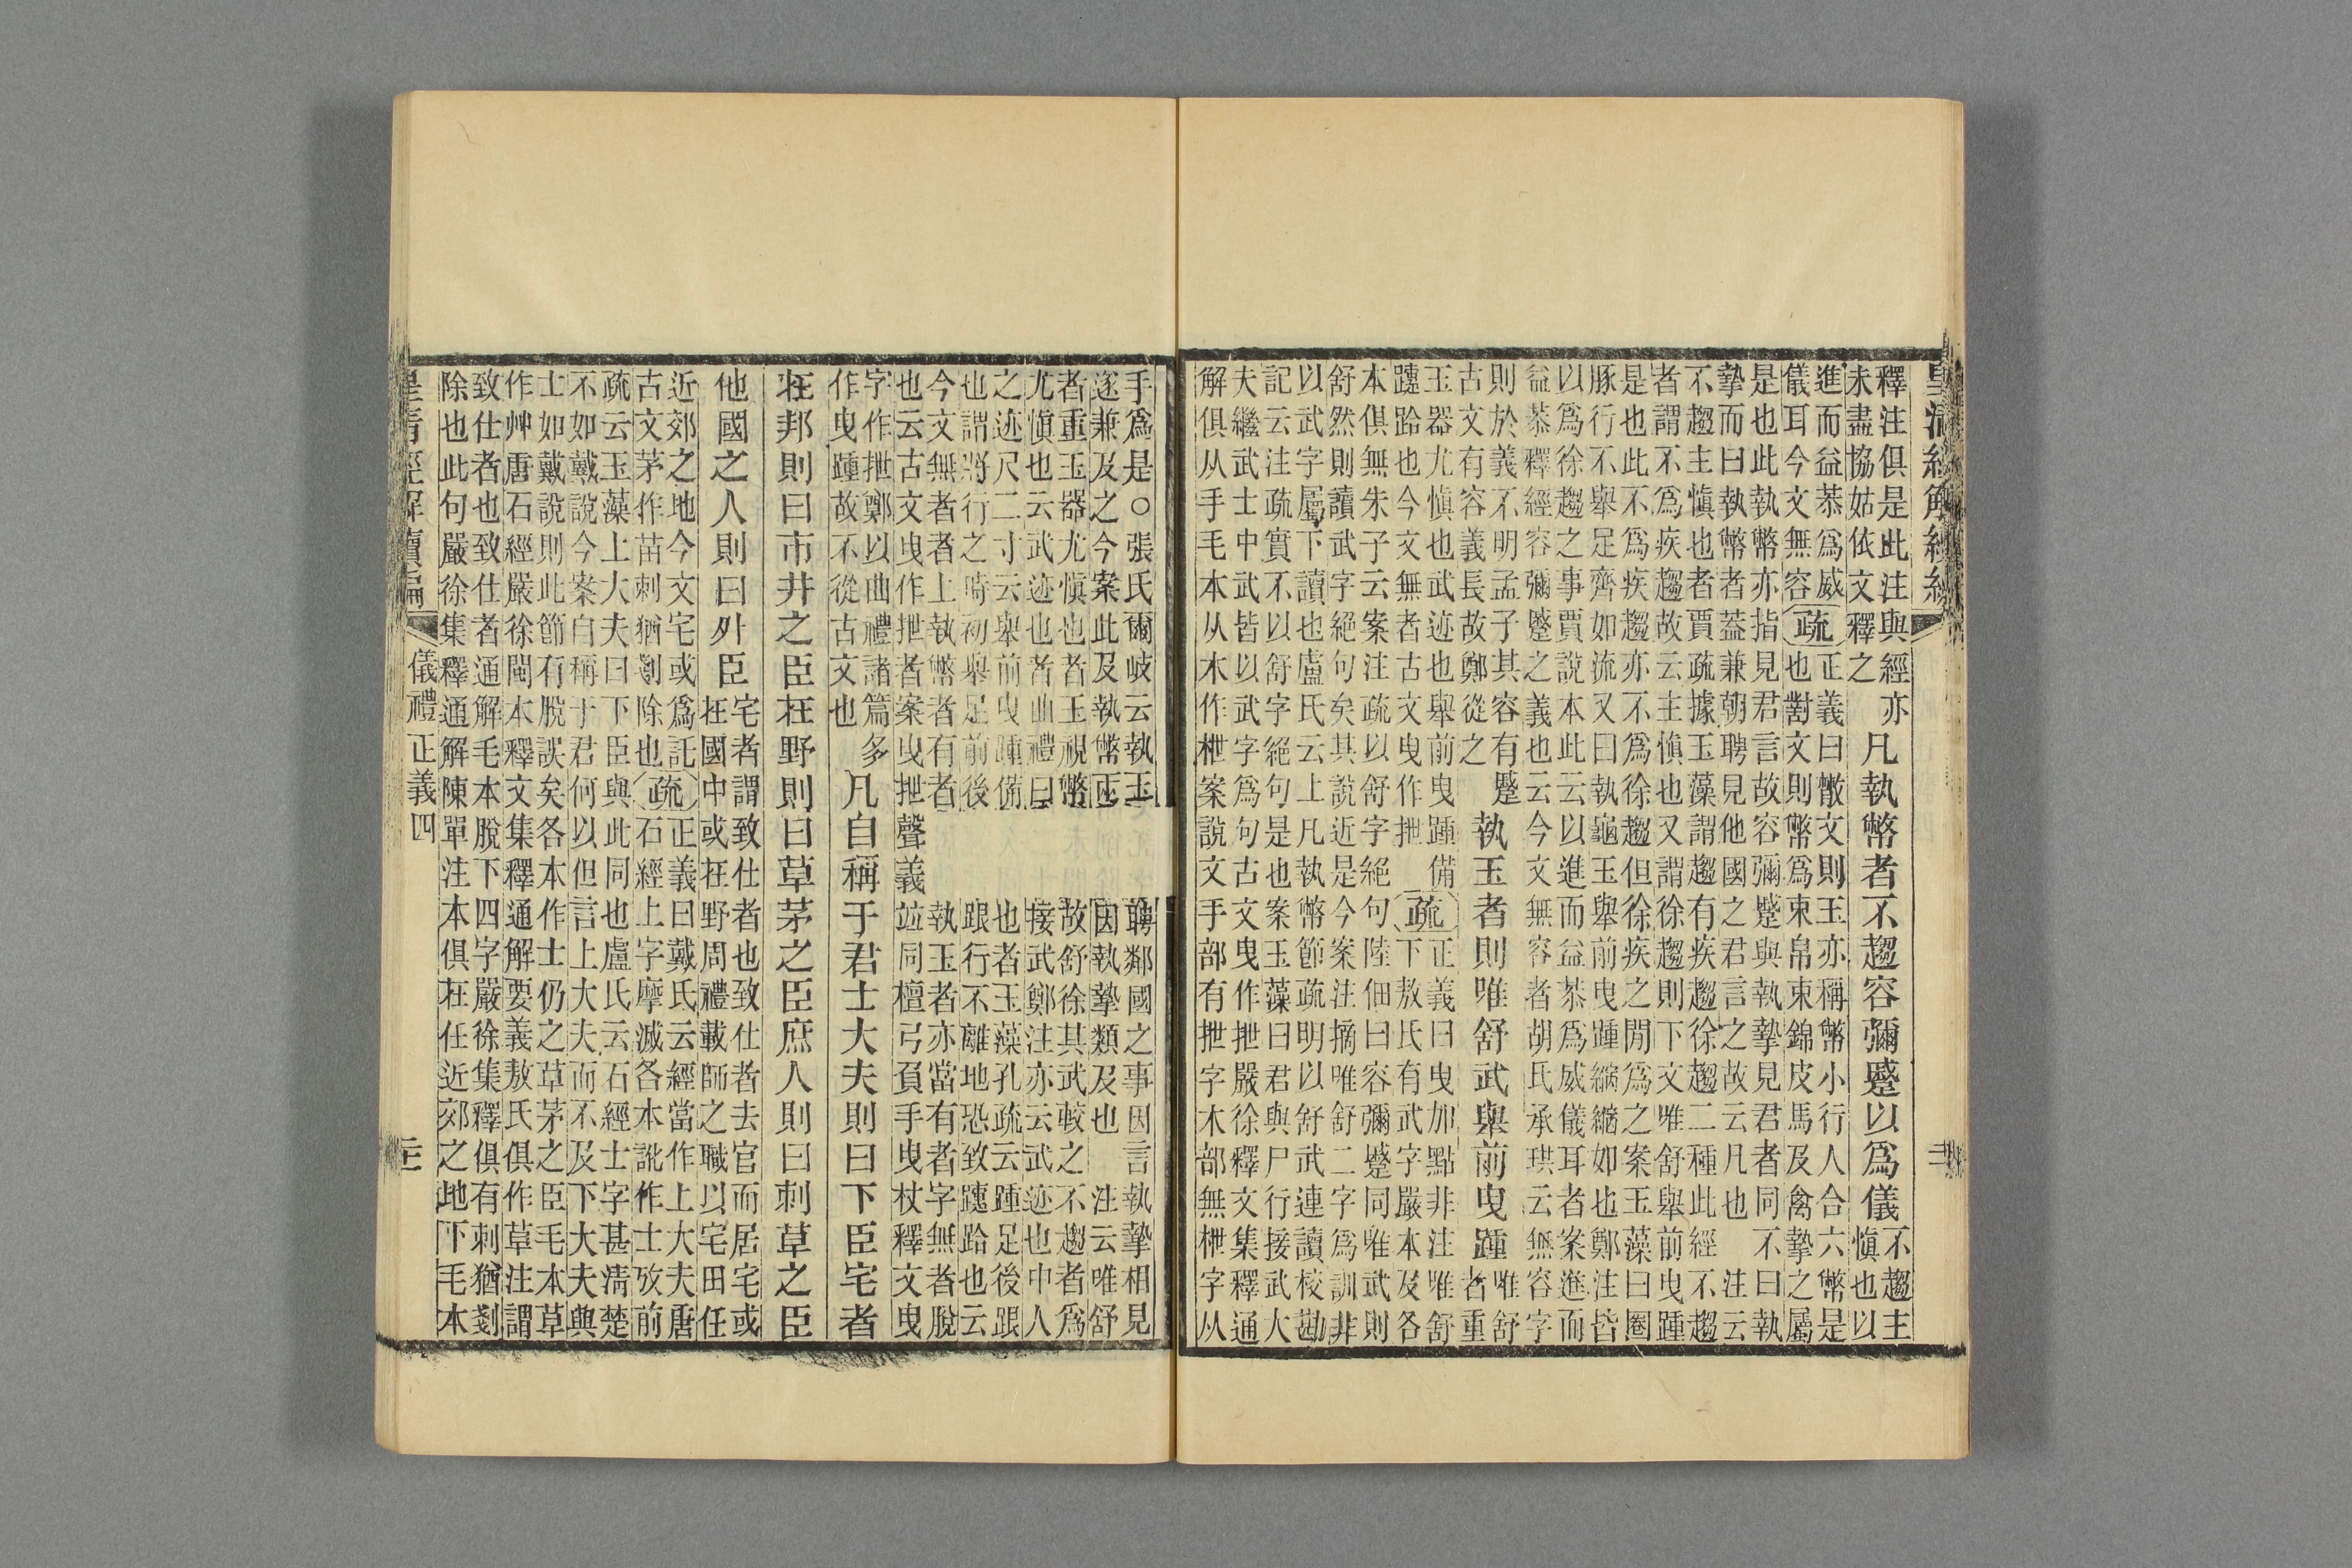 釋注俱是此注與經亦
未盡協姑依文釋之
凡執幣者不趨容彌蹙以爲儀
不趨主
愼也以
進而益恭爲威
儀耳今文無容
疏
正義曰散文則玉亦稱幣小行人合六幣是
也對文則幣爲束帛束錦皮馬及禽摯之屬
是也此執幣亦指見君言故容彌蹙與執摯見君者同不曰執
摯而曰執幣者蓋兼朝聘見他國之君言之故云凡也注云
不趨主愼也者賈疏據玉藻謂趨有疾趨徐趨二種此經不趨
者謂不爲疾趨故云主愼也又謂徐趨則下文唯舒舉前曳踵
是也此不爲疾趨亦不爲徐趨但徐疾之閒爲之案玉藻曰圈
豚行不舉足齊如流又曰執龜玉舉前曳踵縮縮如也鄭注皆
以爲徐趨之事賈說本此云以進而益恭爲威儀耳者案進而
益恭釋經容彌蹙之義也云今文無容者胡氏承珙云無容字
則於義不明孟子其容有蹙
古文有容義長故鄭從之
執玉者則唯舒武舉前曳踵
唯舒
者重
玉器尤愼也武迹也舉前曳踵備
躓跲也今文無者古文曳作抴
疏
正義曰曳加點非注唯舒
下敖氏有武字嚴本及各
本俱無朱子云案注疏以舒字絕句陸佃曰容彌蹙同唯武則
舒然則讀武字絕句矣其說近是今案注摘唯舒二字爲訓非
以武字屬下讀也盧氏云上凡執幣節疏明以舒武連讀校勘
記云注疏實不以舒字絕句是也案玉藻曰君與尸行接武大
夫繼武士中武皆以武字爲句古文曳作抴嚴徐釋文集釋通
解俱从手毛本从木作枻案說文手部有抴字木部無枻字从
手爲是○張氏爾岐云執玉
聘鄰國之事因言執摯相見
遂兼及之今案此及執幣
因執摯類及也注云唯舒
者重玉器尤愼也者玉視幣
故舒徐其武較之不趨者爲
尤愼也云武迹也者曲禮曰
接武鄭注亦云武迹也中人
之迹尺二寸云舉前曳踵備
也者玉藻孔疏云踵足後跟
也謂將行之時初舉足前後
跟行不離地恐致躓跲也云
今文無者者上執幣者有者
執玉者亦當有者字無者脫
也云古文曳作抴者案曳抴聲義
竝同檀弓負手曳杖釋文曳
字作抴鄭以曲禮諸篇多
作曳踵故不從古文也
凡自稱于君士大夫則曰下臣宅者
在邦則曰市井之臣在野則曰草茅之臣庶人則曰刺草之臣
他國之人則曰外臣
宅者謂致仕者也致仕者去官而居宅或
在國中或在野周禮載師之職以宅田任
近郊之地今文宅或爲託
古文茅作苗刺猶剗除也
疏
正義曰戴氏云經當作上大夫唐
石經上字摩滅各本訛作士攷前
疏云玉藻上大夫曰下臣與此同也盧氏云石經士字甚淸楚
不如戴說今案自稱于君何以但言上大夫而不及下大夫與
士如戴說則此節有脫誤矣各本作士仍之草茅之臣毛本草
作艸唐石經嚴徐閩本釋文集釋通解要義敖氏俱作草注謂
致仕者也致仕者通解毛本脫下四字嚴徐集釋俱有刺猶剗
除也此句嚴徐集釋通解陳單注本俱在任近郊之地下毛本
儀禮正義四